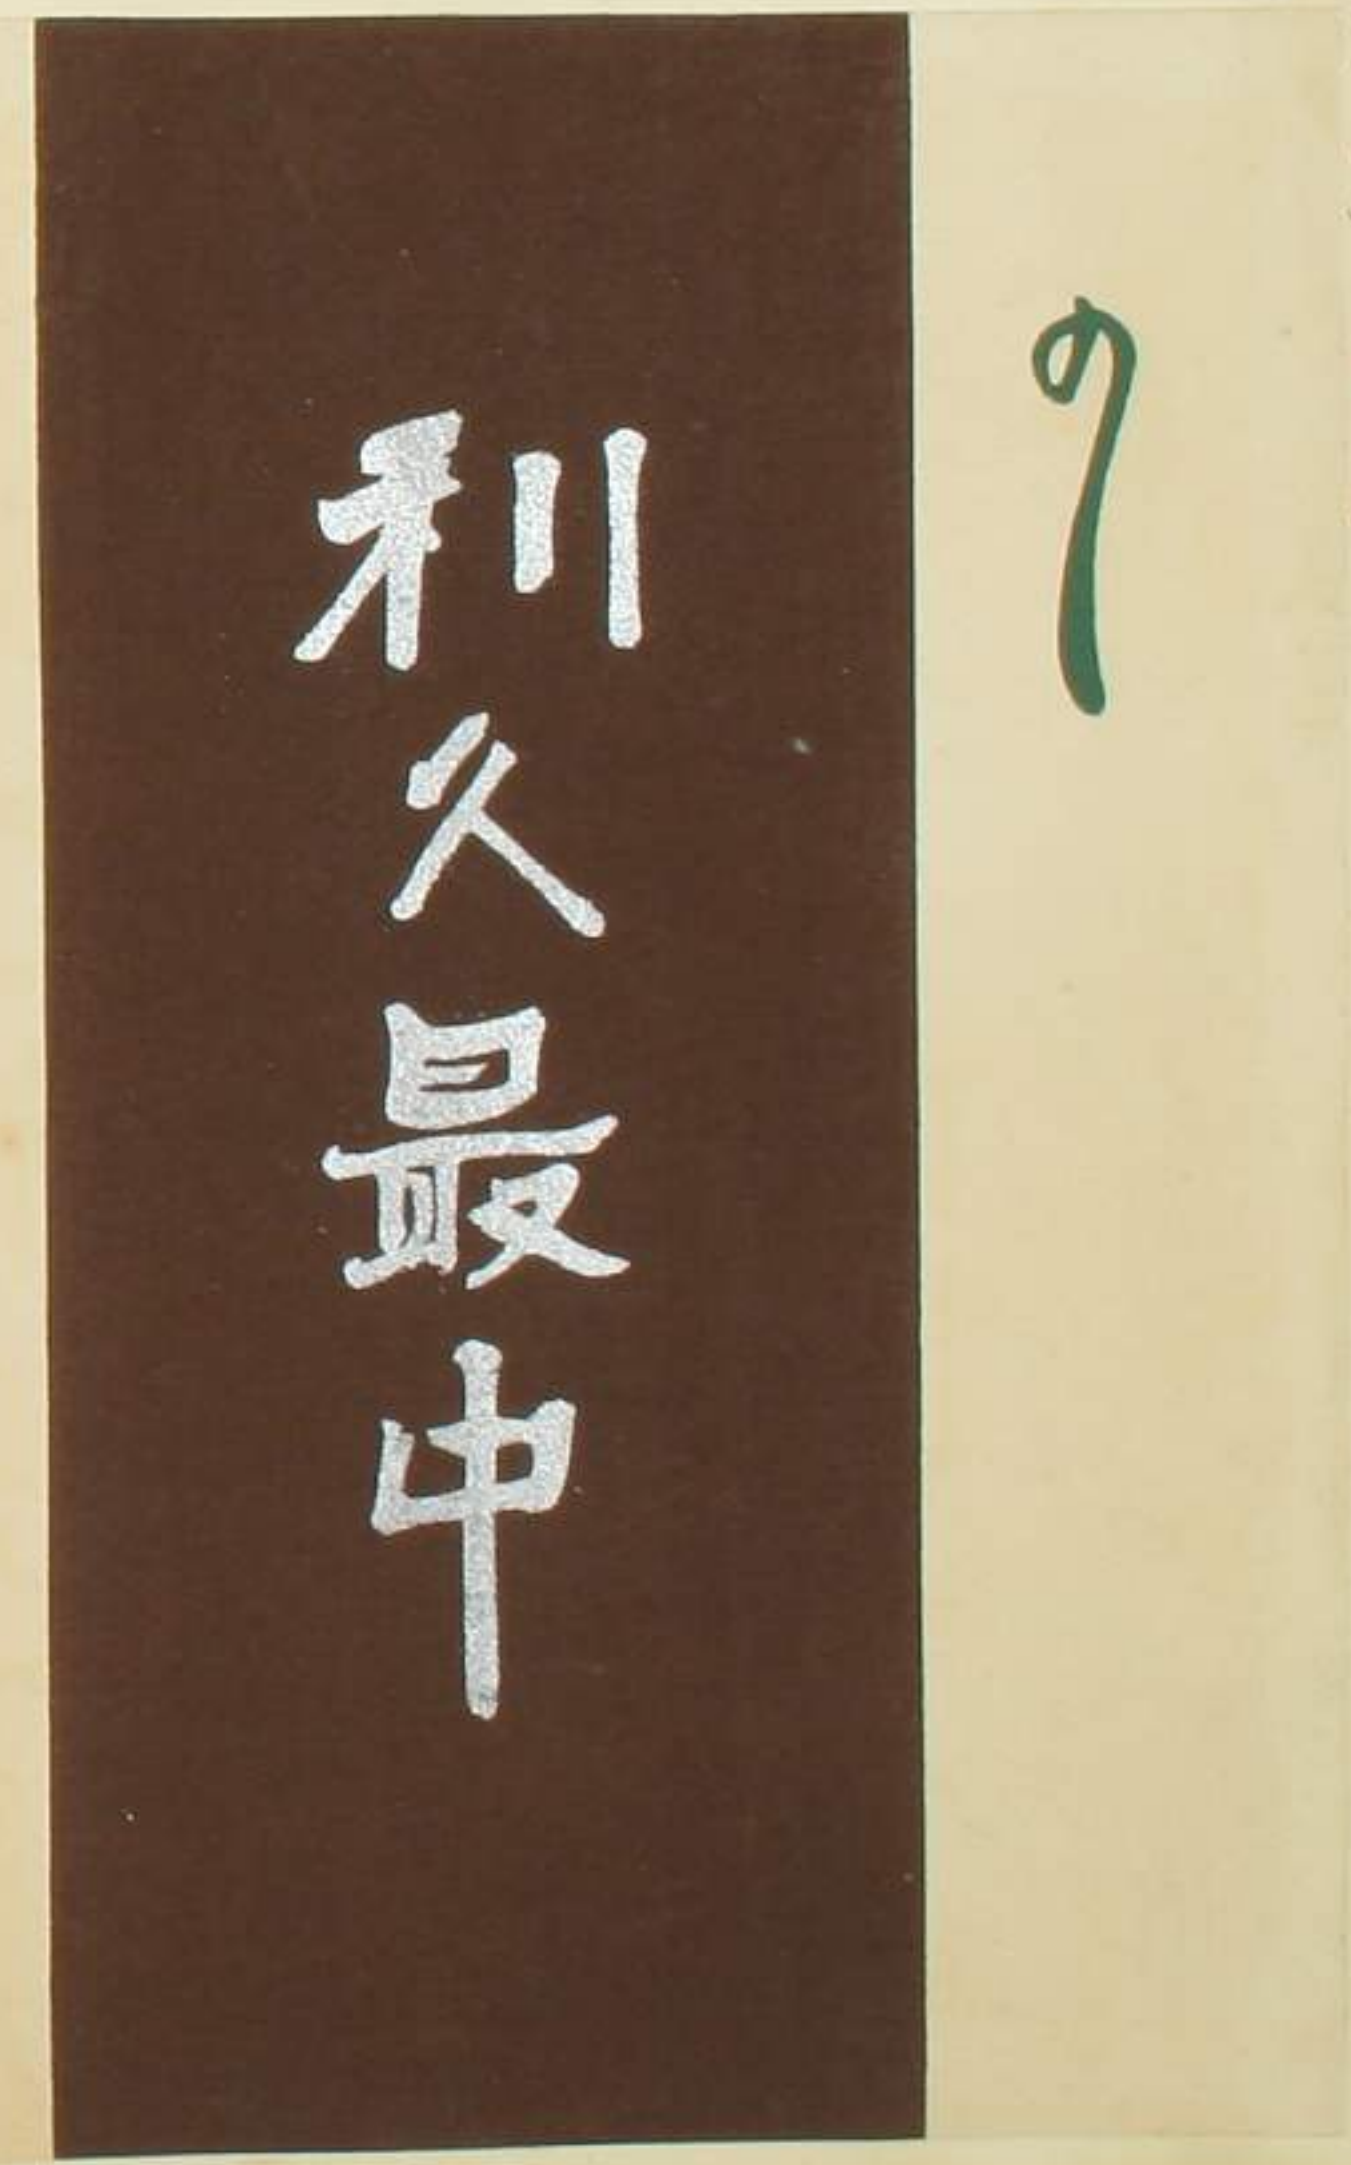 の
利久最中